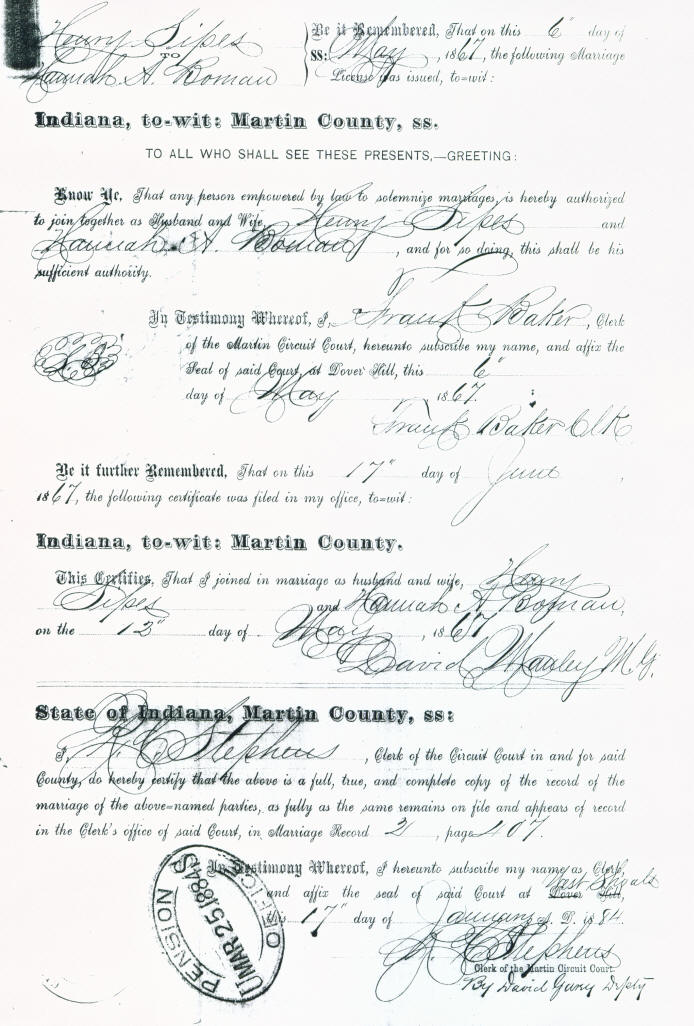 Henry Sipes
TO
Hannah A. Boman
Be it Remembered, That on this 6" day of
SS: May, 1867, the following Marriage
License was issued, to=wit:
Indiana, to-wit: Martin County, ss.
TO ALL WHO SHALL SEE THESE PRESENTS,—GREETING:
Know Ye, That any person empowered by law to solemnize marriages, is hereby authorized
to join together as Husband and Wife, Henry Sipes and
Hannah A. Boman, and for so doing, this shall be his
sufficient authority.
In Testimony Whereof, I, Frank Baker, Clerk
of the Martin Circuit Court, hereunto subscribe my name, and affix the
Seal of said Court, at Dover Hill, this 6"
day of May 1867.
Frank Baker Clk
Be it further Remembered, That on this 17" day of June,
1867, the following certificate was filed in my office, to=wit:
Indiana, to-wit: Martin County.
This Certifies, That I joined in marriage as husband and wife, Henry
Sipes and Hannah A Boman,
on the 12" day of May, 1867
David M. G.
State of Indiana, Martin County, ss:
I, Stephens, Clerk of the Circuit Court in and for said
County, do hereby certify that the above is a full, true, and complete copy of the record of the
marriage of the above=named parties, as fully as the same remains on file and appears of record
in the Clerk's office of said Court, in Marriage Record 2, page 407.
In Testimony Whereof, I hereunto subscribe my name as Clerk,
and affix the seal of said Court at Dover Hill, Shoals
this 17" day of January A. D. 1884.
Stephens
Clerk of the Martin Circuit Court.
By David Deputy
PENSION OFFICE
MAR 25 1884